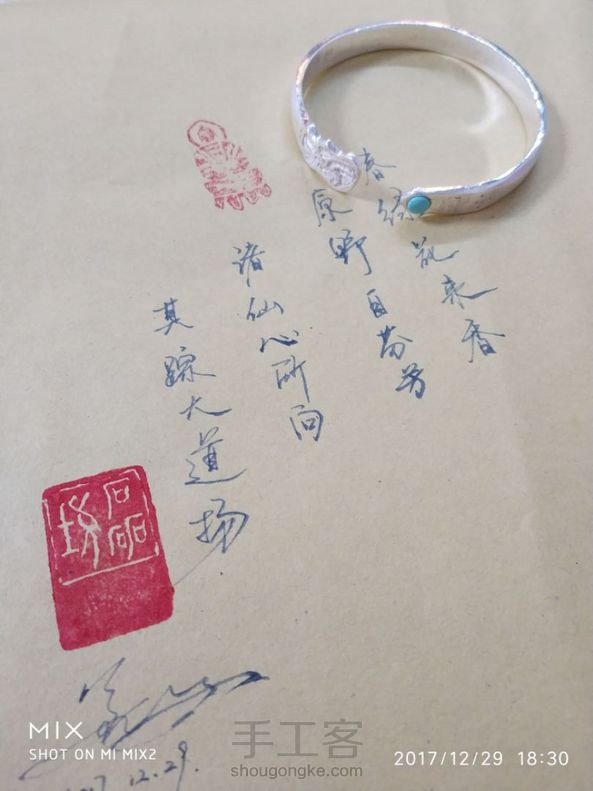 春绿花来香
原野自芬芳
诸仙心所向
其踪大道扬
12.29.
MIX
SHOT ON MI MIX2
手工客
shougongke.com
2017/12/29 18:30